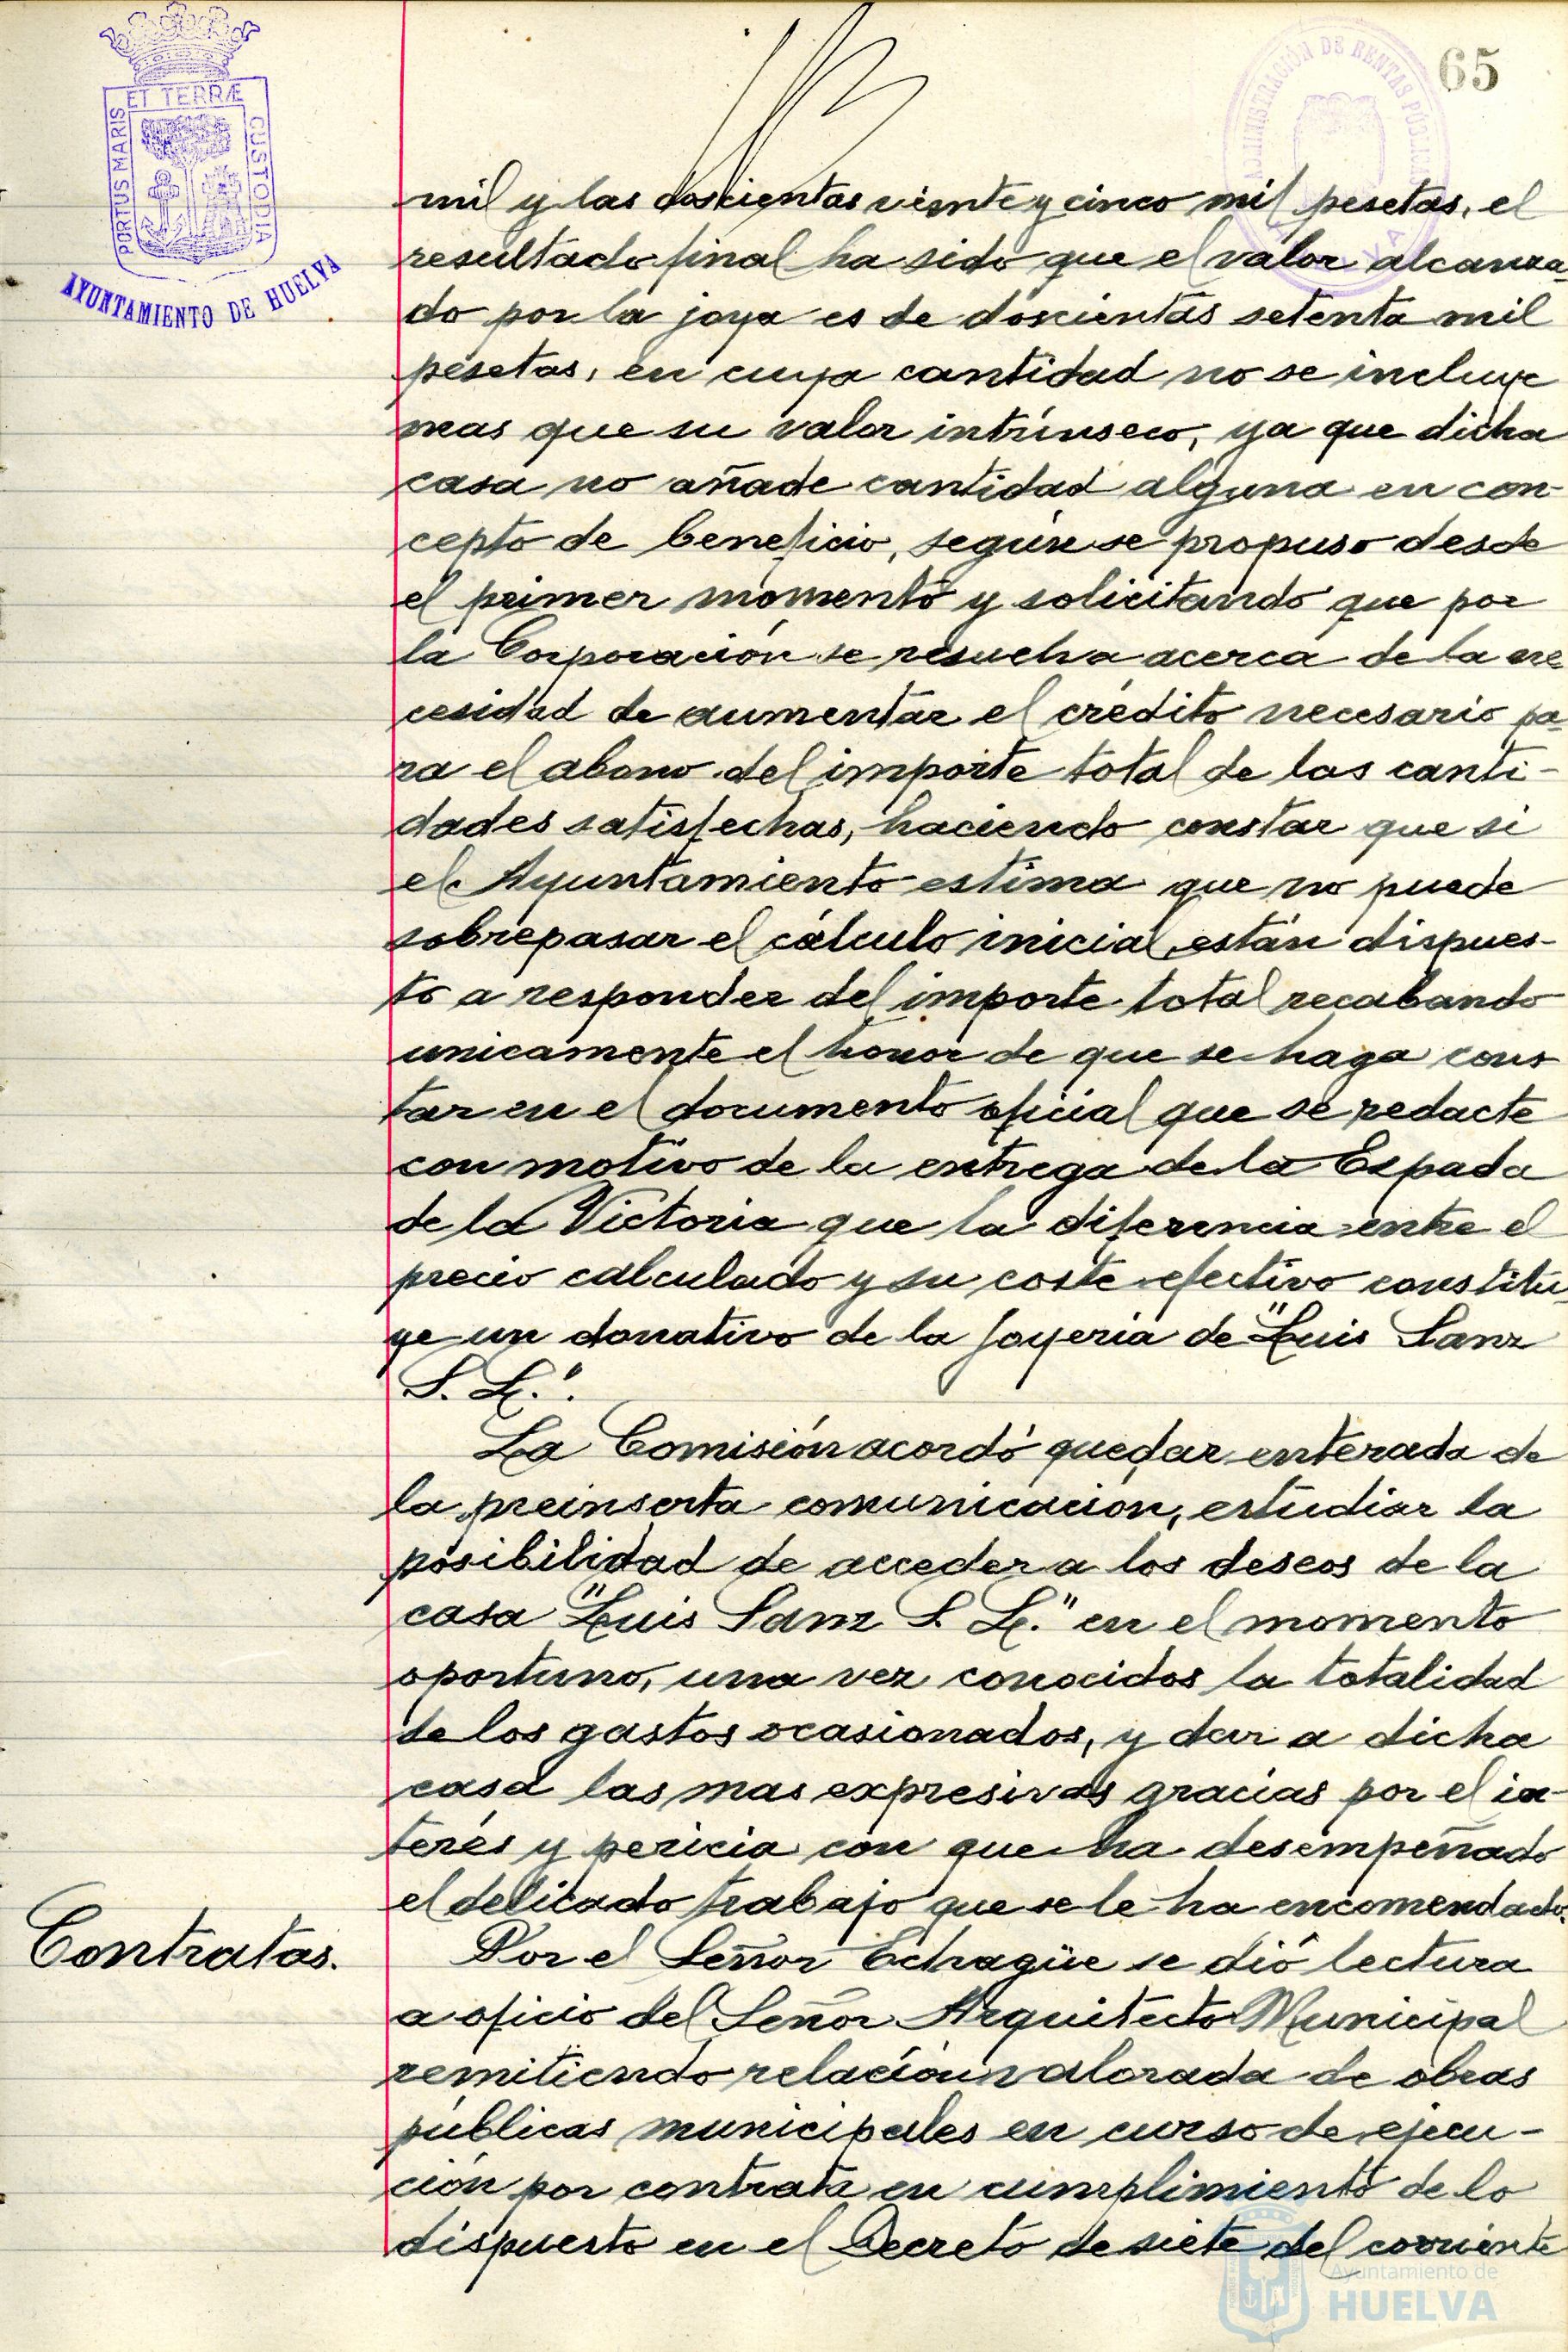 65
ET TERRÆ
PORTUS MARIS
CUSTODIA
AYUNTAMIENTO DE HUELVA
ADMINISTRACIÓN DE RENTAS PÚBLICAS
mil y las doscientas viente y cinco mil pesetas, el
resultado final ha sido que el valor alcanza-
do por la joya es de doscientas setenta mil
pesetas, en cuya cantidad no se incluye
mas que su valor intrínseco, ya que dicha
casa no añade cantidad alguna en con-
cepto de beneficio, según se propuso desde
el primer momento y solicitando que por
la Corporación se resuelva acerca de la ne-
cesidad de aumentar el crédito necesario pa-
ra el abono del importe total de las canti-
dades satisfechas, haciendo constar que si
el Ayuntamiento estima que no puede
sobrepasar el cálculo inicial, están dispues-
to a responder del importe total recabando
unicamente el honor de que se haga cons
tar en el documento oficial que se redacte
con motivo de la entrega de la Espada
de la Victoria que la diferencia entre el
precio calculado y su coste efectivo constitu-
ye un donativo de la Joyería de "Luis Sanz
S. L.".
La Comisión acordó quedar enterada de
la preinserta comunicación, estudiar la
posibilidad de acceder a los deseos de la
casa "Luis Sanz S. L." en el momento
oportuno, una vez conocidos la totalidad
de los gastos ocasionados, y dar a dicha
casa las mas expresivas gracias por el in-
terés y pericia con que ha desempeñado
el delicado trabajo que se le ha encomendado.
Contratas.
Por el Señor Echagüe se dió lectura
a oficio del Señor Arquitecto Municipal
remitiendo relación valorada de obras
públicas municipales en curso de ejecu-
ción por contrata en cumplimiento de lo
dispuesto en el Decreto de siete del corriente
Ayuntamiento de
HUELVA